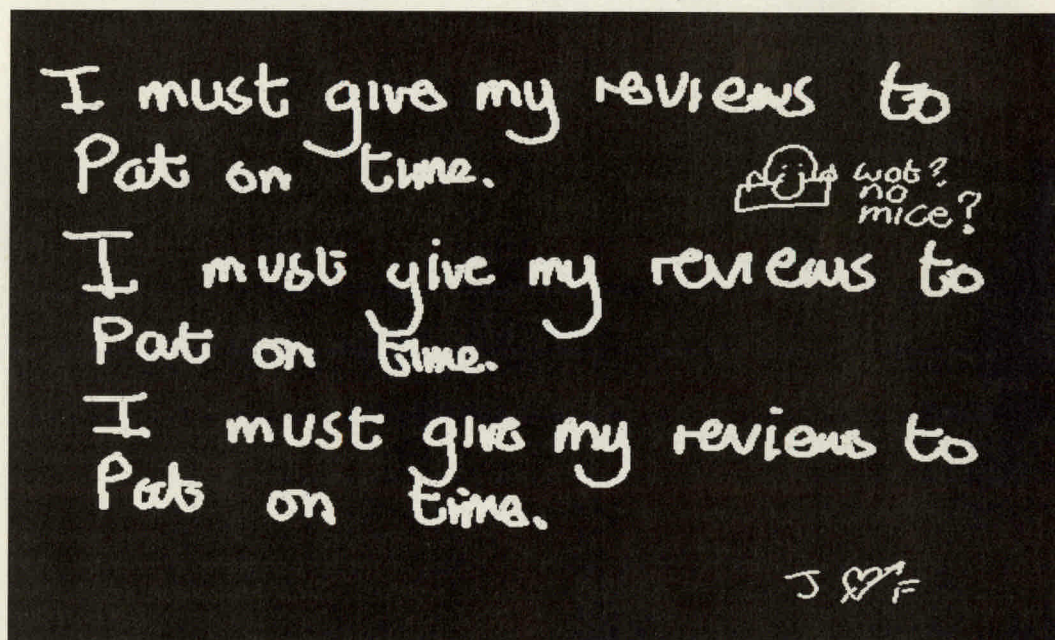 I must give my reviews to
Pat on time.
wot?
no
mice?
I must give my reviews to
Pat on time.
I must give my reviews to
Pat on time.
J F